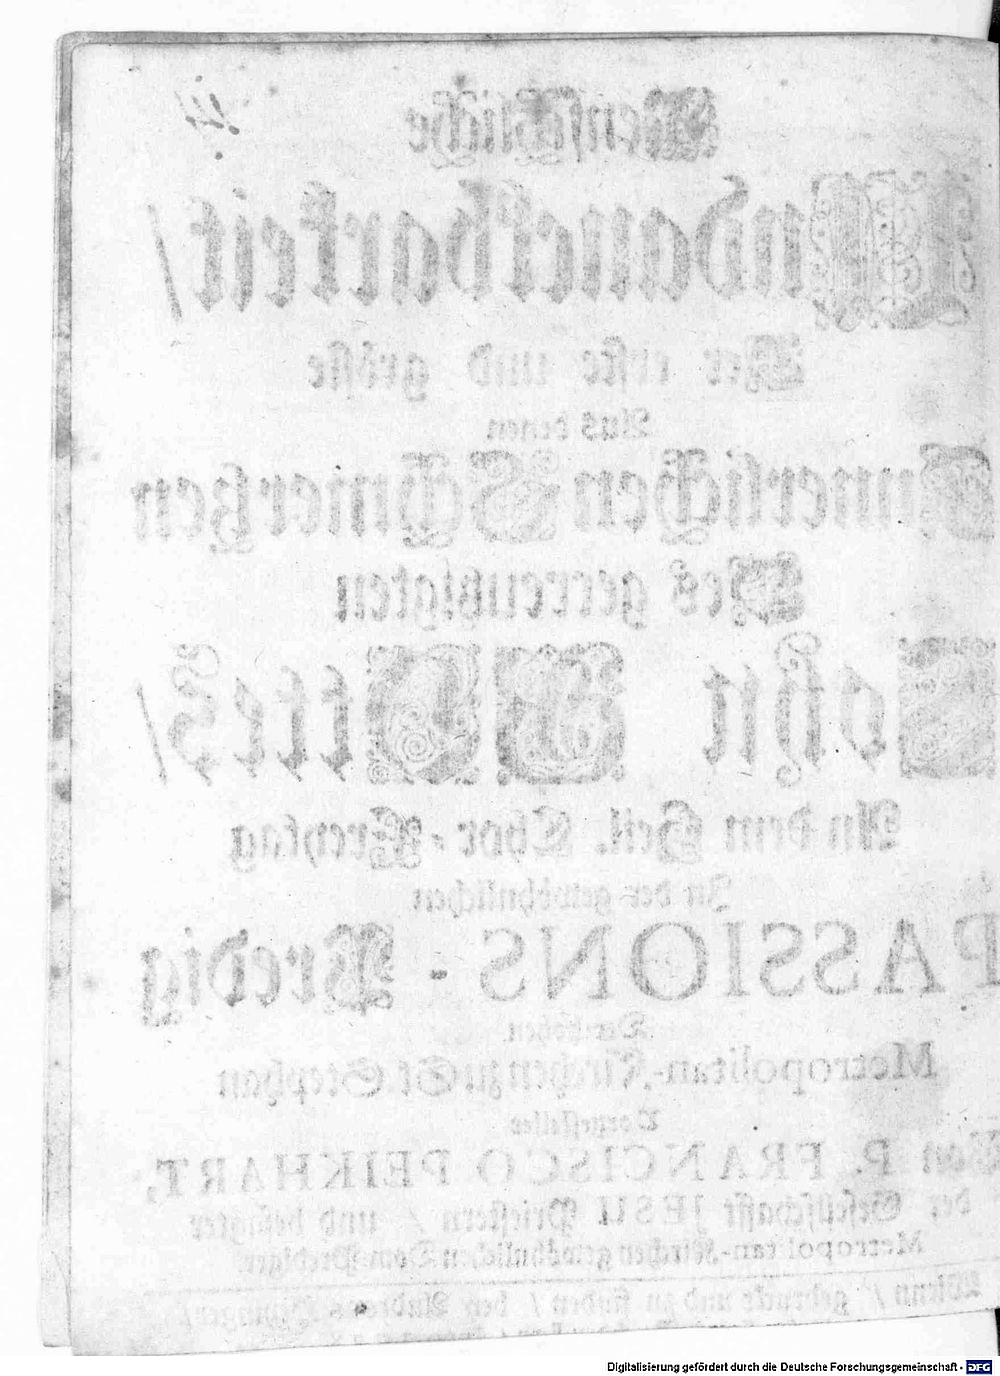 Menschliche
Undanckbarkeit/
Der erste und gröste
Aus denen
Innerlichen Schmertzen
Des gecreutzigten
Sohn GOttes/
An dem Heil. Char-Freytag
In der gewöhnlichen
PASSIONS-Predig
Metropolitan-Kirchen zu St Stephan
Vorgestellet
Von P. FRANCISCO PEIKHART,
der Gesellschafft JESU Priestern / und besagter
Metropolitan-Kirchen gewöhnlichen Dom-Prediger.
gedruckt und zu finden / bey Andreas Heyinger/
Digitalisierung gefördert durch die Deutsche Forschungsgemeinschaft - DFG